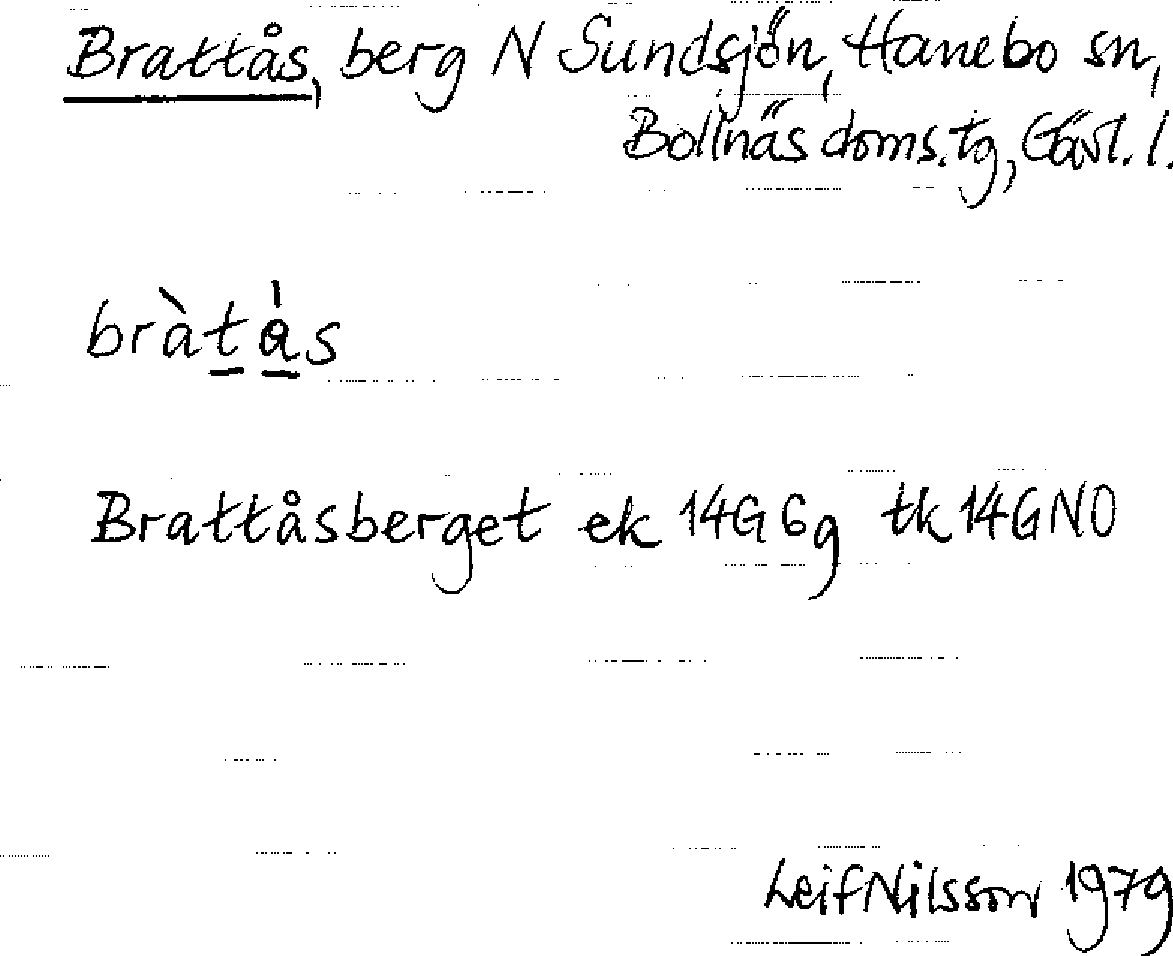 Brattås, berg N Sundsjön, Hanebo sn,
Bollnäs doms.tg, Gävl. l.
bràtås
Brattåsberget ek 14G6g tk 14GNO
Leif Nilsson 1979